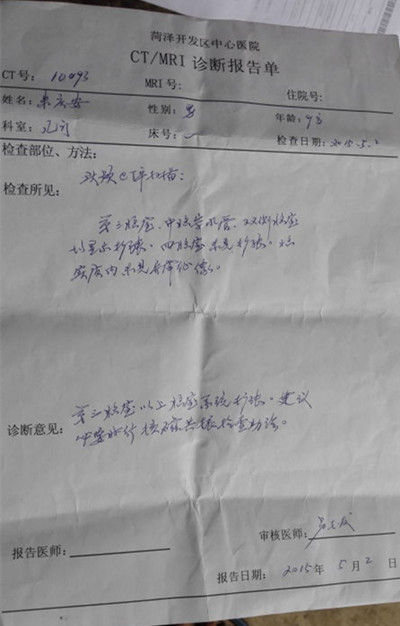 菏泽开发区中心医院
CT/MRI 诊断报告单
CT号: 10093 MRI号: 住院号:
姓名: 性别: 男 年龄: 9岁
科室: 床号: 检查日期: 2015.5.2
检查部位、方法:
头颅CT平扫描:
检查所见:
第三脑室、中脑导水管、双侧脑室
明显扩张。四脑室未见扩张。脑
实质内未见异常征象。
第三脑室以上脑室系统扩张。建议
诊断意见:
必要时行核磁共振检查助诊。
审核医师:
报告医师:
报告日期: 2015年 5月 2日